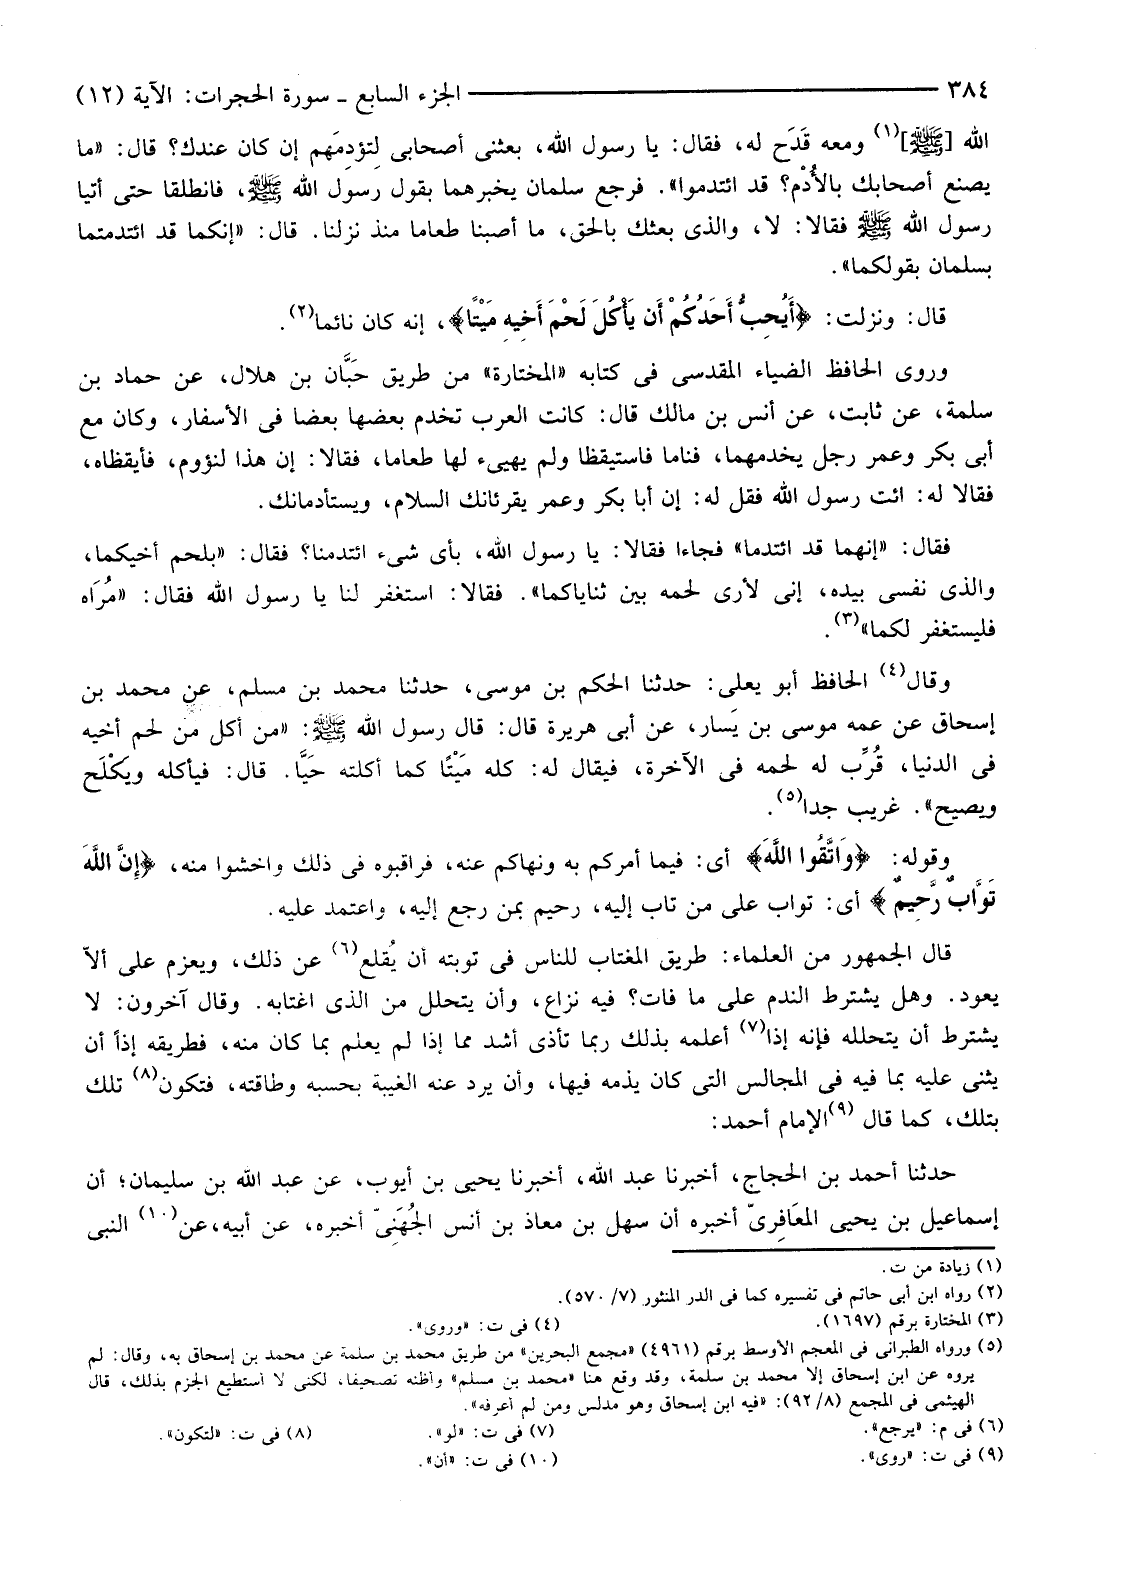 ٣٨٤ الجزء السابع ـ سورة الحجرات: الآية (١٢)
الله [ﷺ](١) ومعه قَدَح له، فقال: يا رسول الله، بعثنى أصحابى لِتؤدِمَهم إن كان عندك؟ قال: «ما
يصنع أصحابك بالأُدْم؟ قد ائتدموا». فرجع سلمان يخبرهما بقول رسول الله ﷺ، فانطلقا حتى أتيا
رسول الله ﷺ فقالا: لا، والذى بعثك بالحق، ما أصبنا طعاما منذ نزلنا. قال: «إنكما قد ائتدمتما
بسلمان بقولكما».
قال: ونزلت: ﴿أَيُحِبُّ أَحَدُكُمْ أَن يَأْكُلَ لَحْمَ أَخِيهِ مَيْتًا﴾، إنه كان نائما(٢).
وروى الحافظ الضياء المقدسى فى كتابه «المختارة» من طريق حَبَّان بن هلال، عن حماد بن
سلمة، عن ثابت، عن أنس بن مالك قال: كانت العرب تخدم بعضها بعضا فى الأسفار، وكان مع
أبى بكر وعمر رجل يخدمهما، فناما فاستيقظا ولم يهيىء لها طعاما، فقالا: إن هذا لنؤوم، فأيقظاه،
فقالا له: ائت رسول الله فقل له: إن أبا بكر وعمر يقرئانك السلام، ويستأدمانك.
فقال: «إنهما قد ائتدما» فجاءا فقالا: يا رسول الله، بأى شىء ائتدمنا؟ فقال: «بلحم أخيكما،
والذى نفسى بيده، إنى لأرى لحمه بين ثناياكما». فقالا: استغفر لنا يا رسول الله فقال: «مُرَاه
فليستغفر لكما»(٣).
وقال(٤) الحافظ أبو يعلى: حدثنا الحكم بن موسى، حدثنا محمد بن مسلم، عن محمد بن
إسحاق عن عمه موسى بن يَسار، عن أبى هريرة قال: قال رسول الله ﷺ: «من أكل من لحم أخيه
فى الدنيا، قُرِّب له لحمه فى الآخرة، فيقال له: كله مَيْتًا كما أكلته حَيًّا. قال: فيأكله ويَكْلَح
ويصيح». غريب جدا(٥).
وقوله: ﴿وَاتَّقُوا اللَّهَ﴾ أى: فيما أمركم به ونهاكم عنه، فراقبوه فى ذلك واخشوا منه، ﴿إِنَّ اللَّهَ
تَوَّابٌ رَّحِيمٌ﴾ أى: تواب على من تاب إليه، رحيم بمن رجع إليه، واعتمد عليه.
قال الجمهور من العلماء: طريق المغتاب للناس فى توبته أن يُقلع(٦) عن ذلك، ويعزم على ألاّ
يعود. وهل يشترط الندم على ما فات؟ فيه نزاع، وأن يتحلل من الذى اغتابه. وقال آخرون: لا
يشترط أن يتحلله فإنه إذا(٧) أعلمه بذلك ربما تأذى أشد مما إذا لم يعلم بما كان منه، فطريقه إذاً أن
يثنى عليه بما فيه فى المجالس التى كان يذمه فيها، وأن يرد عنه الغيبة بحسبه وطاقته، فتكون(٨) تلك
بتلك، كما قال (٩)الإمام أحمد:
حدثنا أحمد بن الحجاج، أخبرنا عبد الله، أخبرنا يحيى بن أيوب، عن عبد الله بن سليمان؛ أن
إسماعيل بن يحيى المعَافِرىّ أخبره أن سهل بن معاذ بن أنس الجُهَنِىّ أخبره، عن أبيه،عن(١٠) النبى
(١) زيادة من ت.
(٢) رواه ابن أبى حاتم فى تفسيره كما فى الدر المنثور (٧/ ٥٧٠).
(٣) المختارة برقم (١٦٩٧). (٤) فى ت: «وروى».
(٥) ورواه الطبرانى فى المعجم الأوسط برقم (٤٩٦١) «مجمع البحرين» من طريق محمد بن سلمة عن محمد بن إسحاق به، وقال: لم
يروه عن ابن إسحاق إلا محمد بن سلمة، وقد وقع هنا «محمد بن مسلم» وأظنه تصحيفا، لكنى لا أستطيع الجزم بذلك، قال
الهيثمى فى المجمع (٨/ ٩٢): «فيه ابن إسحاق وهو مدلس ومن لم أعرفه».
(٦) فى م: «يرجع». (٧) فى ت: «لو». (٨) فى ت: «لتكون».
(٩) فى ت: «روى». (١٠) فى ت: «أن».